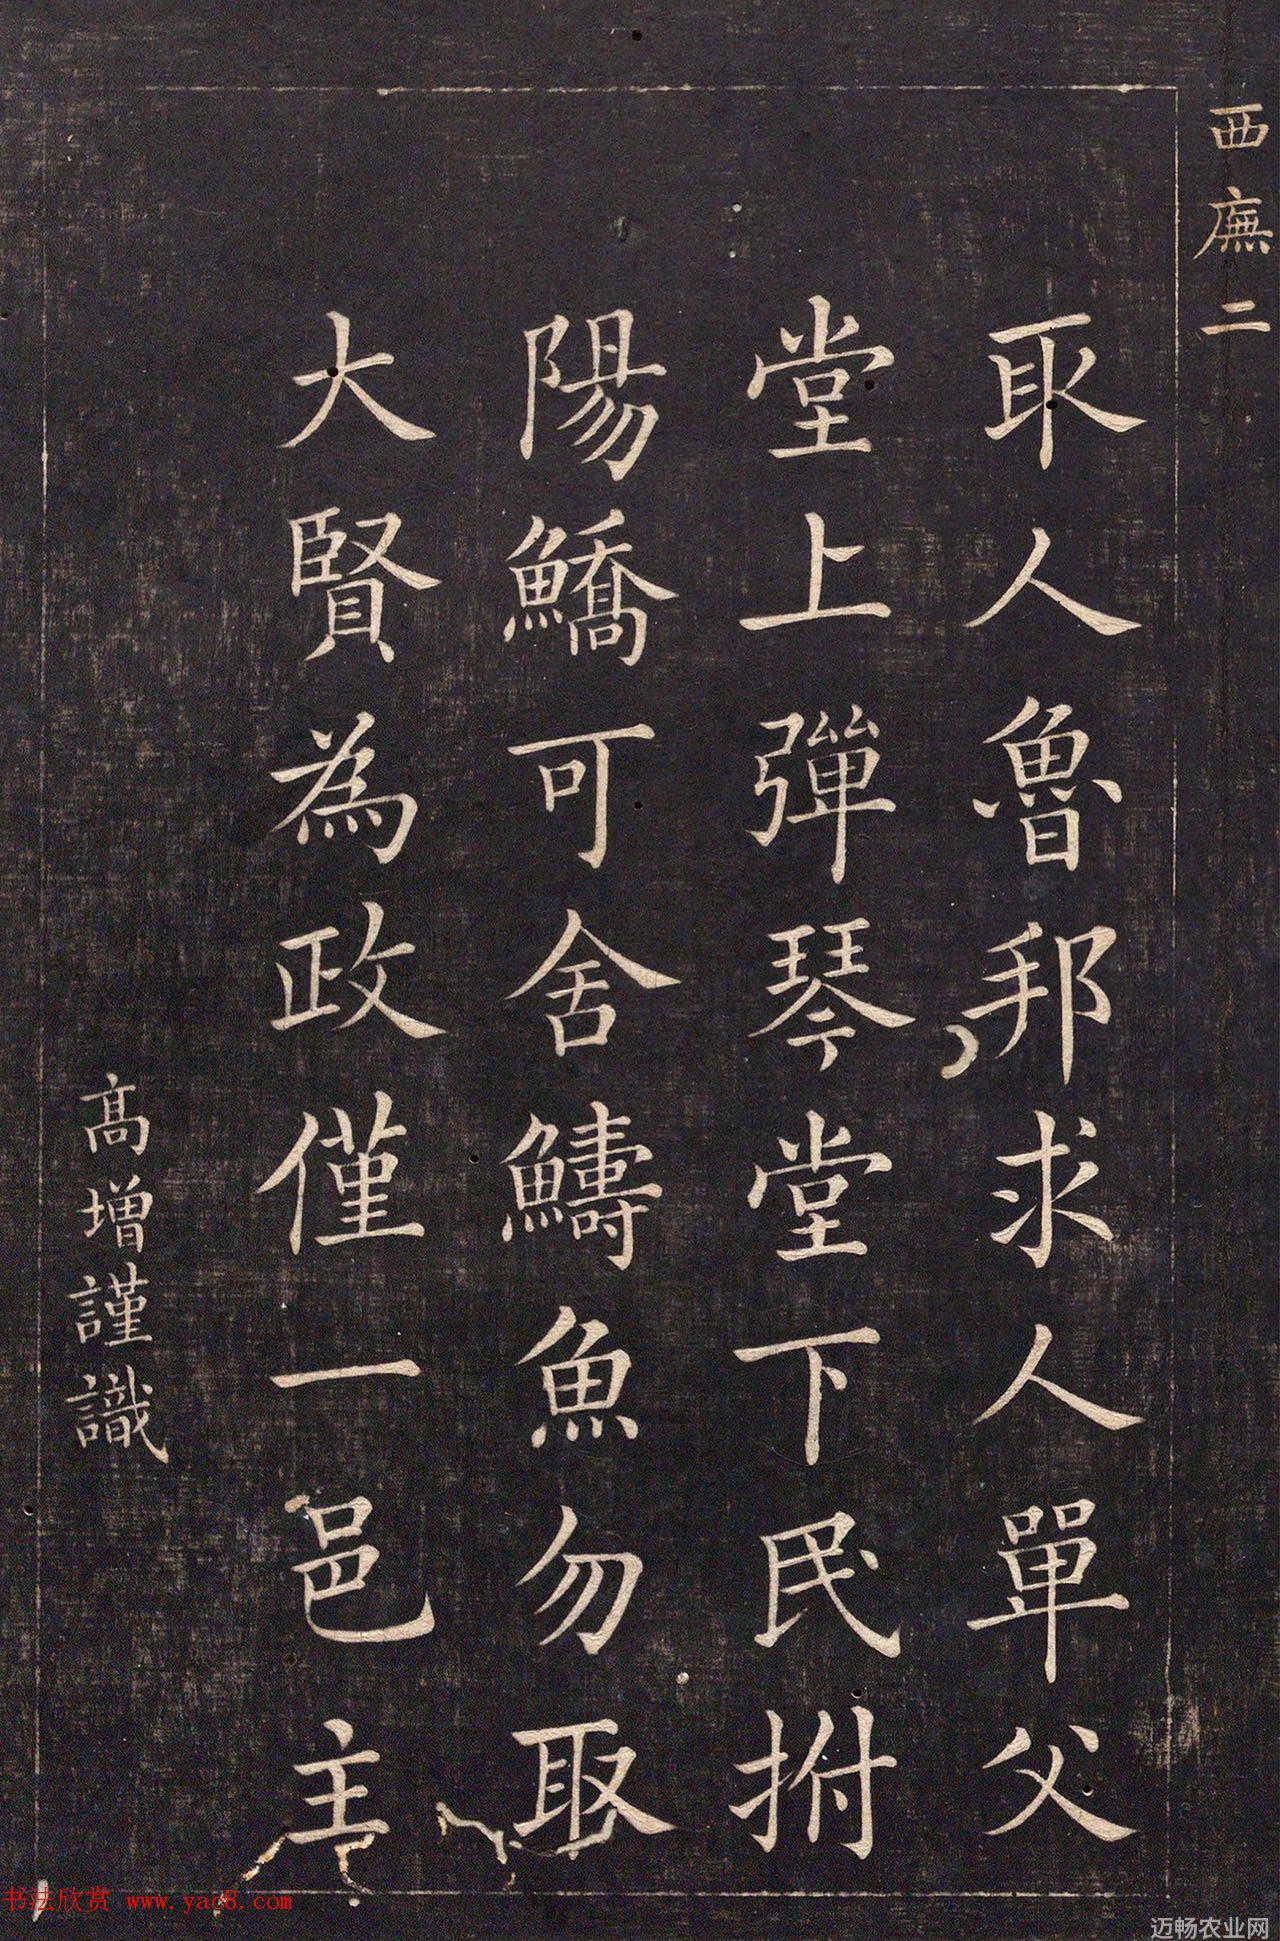 西廡二
取人魯邦求人單父
堂上彈琴堂下民拊
陽鱎可舍鱄魚勿取
大賢為政僅一邑主
高增謹識
书法欣赏 www.yac8.com
迈畅农业网